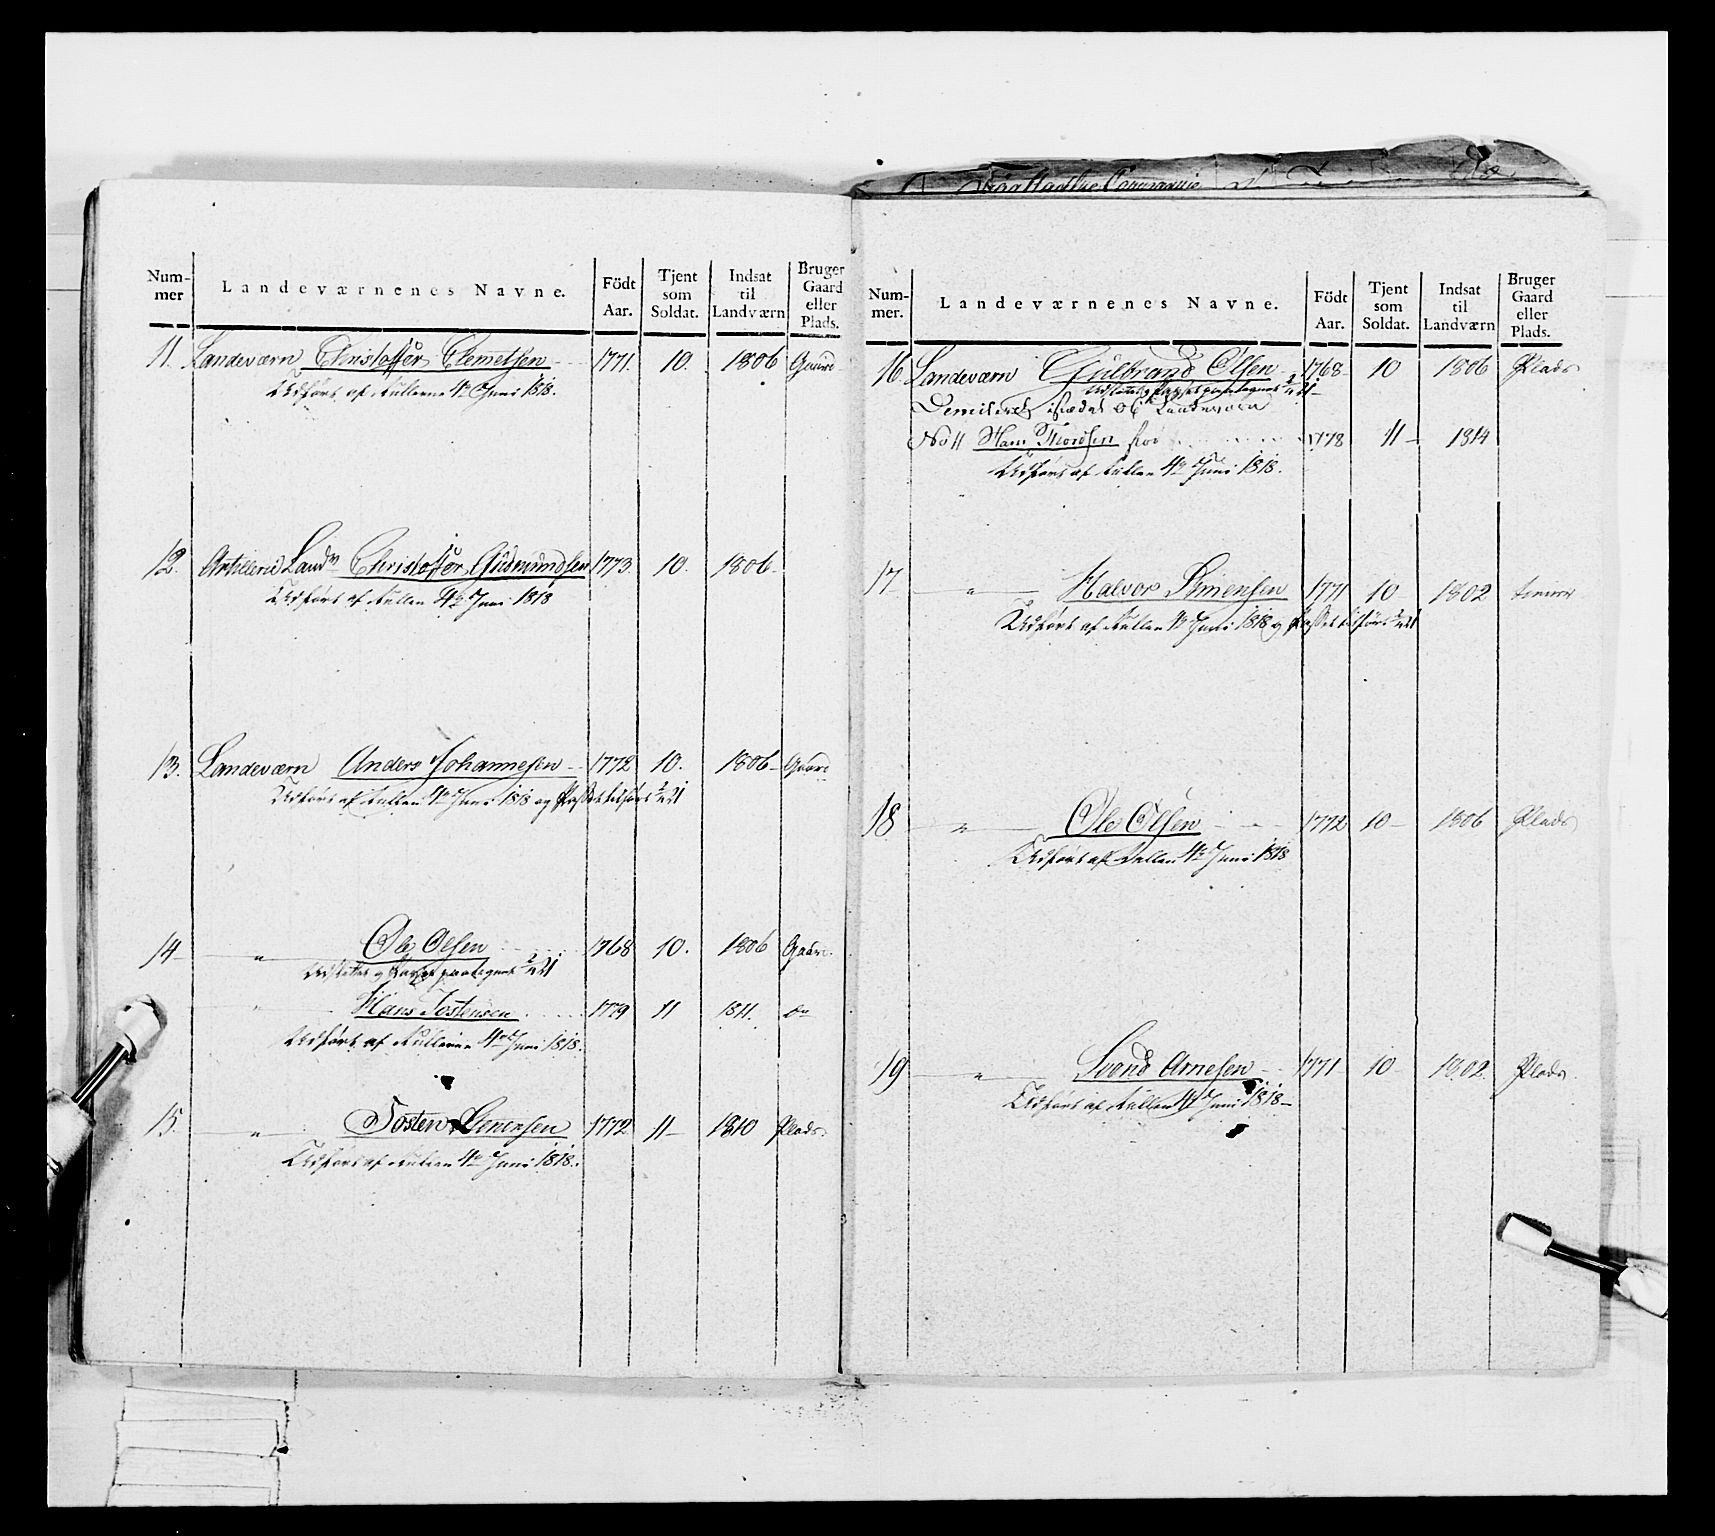 Nummer Landeværnenes Navne. Födt Aar. Tjent som Soldat. Indsat til Landværn Bruger Gaard eller Plads.
11. Landeværn Christoffer Clemetsen 1771. 10. 1806 Gaard
Udført af Rullerne 4de Juni 1818.
12. Artillerie Landv Christoffer Gudmundsen 1773. 10. 1806
Udført af Rullen 4de Juni 1818
13. Landeværn Anders Johannesen 1772 10. 1806 Gaard
Udført af Rullen 4de Juni 1818 og Passet
14 " Ole Olsen 1768 10. 1806 Gaard.
" Hans Jostensen 1779 11 1811. do
Udført af Rullerne 4de Juni 1818.
15. " Josten 1772 11 1810 Plads.
Udført af Rullen 4de Juni 1818.
Compagnie
Nummer. Landeværnenes Navne. Födt Aar. Tjent som Soldat. Indsat til Landværn Bruger Gaard eller Plads.
16 Landeværn Gulbrand Olsen 1768 10 1806 Plads
No 11 Hans Thordsen 1778 11 1814
Udført af Rullen 4de Juni 1818.
17 " Halvor Simensen 1771 10 1802
Udført af Rullen 4de Juni 1818 og Passet
18 " Ole Olsen 1772 10 1806 Plads
Udført af Rullen 4de Juni 1818
19 " Svend Arnesen 1771 10 1802. Plads.
Udført af Rullen 4de Juni 1818